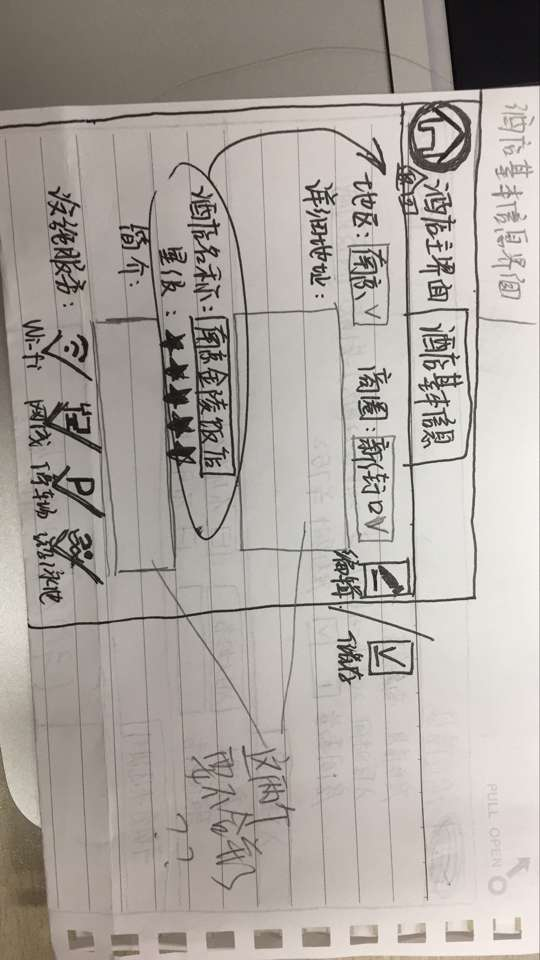 酒店基本信息界面
酒店主界面
酒店基本信息
地区：
南京
商圈：
新街口
编辑
保存
详细地址：
酒店名称：
南京金陵饭店
星级：
简介：
设施服务：
Wifi
网线
停车场
游泳池
这两个
??
PULL OPEN